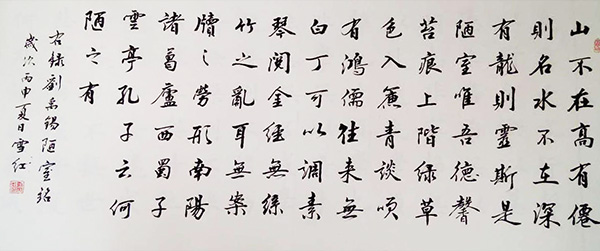 山不在高有僊
則名水不在深
有龍則靈斯是
陋室唯吾德馨
苔痕上階緑草
色入簾青談咲
有鴻儒往來無
白丁可以調素
琴閱金經無絲
竹之亂耳無案
牘之勞形南陽
諸葛廬西蜀子
雲亭孔子云何
陋之有
右録劉禹錫陋室銘
歲次丙申夏日雪红